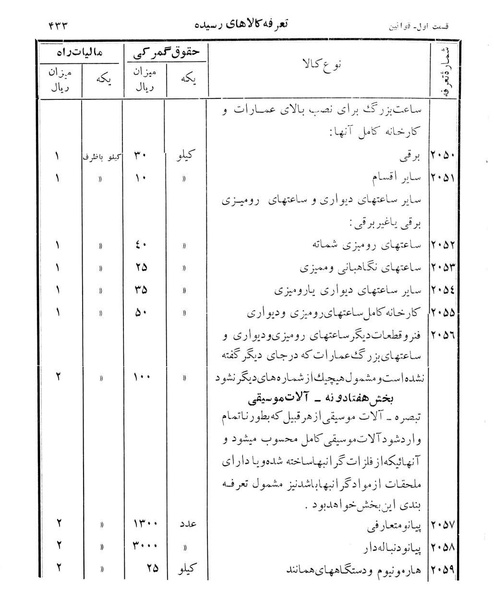 قسمت اول ـ قوانین تعرفه کالاهای رسیده ۴۳۳
شمارهٔ تعرفه نوع کالا حقوق گمرکی مالیات راه
یکه میزان ریال یکه میزان ریال
ساعت بزرگ برای نصب بالای عمارات و
کارخانه کامل آنها:
۲۰۵۰ برقی کیلو ۳۰ کیلو باظرف ۱
۲۰۵۱ سایر اقسام » ۱۰ » ۱
سایر ساعتهای دیواری و ساعتهای رومیزی
برقی یاغیر برقی:
۲۰۵۲ ساعتهای رومیزی شماته » ۴۰ » ۱
۲۰۵۳ ساعتهای نگاهبانی و ممیزی » ۲۵ » ۱
۲۰۵۴ سایر ساعتهای دیواری یارومیزی » ۳۵ » ۱
۲۰۵۵ کارخانه کامل ساعتهای رومیزی و دیواری » ۵۰ » ۱
۲۰۵۶ فنر و قطعات دیگر ساعتهای رومیزی و دیواری و
ساعتهای بزرگ عمارات که در جای دیگر گفته
نشده است و مشمول هیچیک از شماره های دیگر نشود » ۱۰۰ » ۲
بخش هفتاد و نه ـ آلات موسیقی
تبصره ـ آلات موسیقی از هر قبیل که بطور ناتمام
وارد شود آلات موسیقی کامل محسوب میشود و
آنهائیکه از فلزات گرانبها ساخته شده و یا دارای
ملحقات از مواد گرانبها باشد نیز مشمول تعرفه
بندی این بخش خواهد بود .
۲۰۵۷ پیانو متعارفی عدد ۱۳۰۰ » ۲
۲۰۵۸ پیانو دنباله دار » ۳۰۰۰ » ۲
۲۰۵۹ هارمونیوم و دستگاههای همانند کیلو ۲۵ » ۲